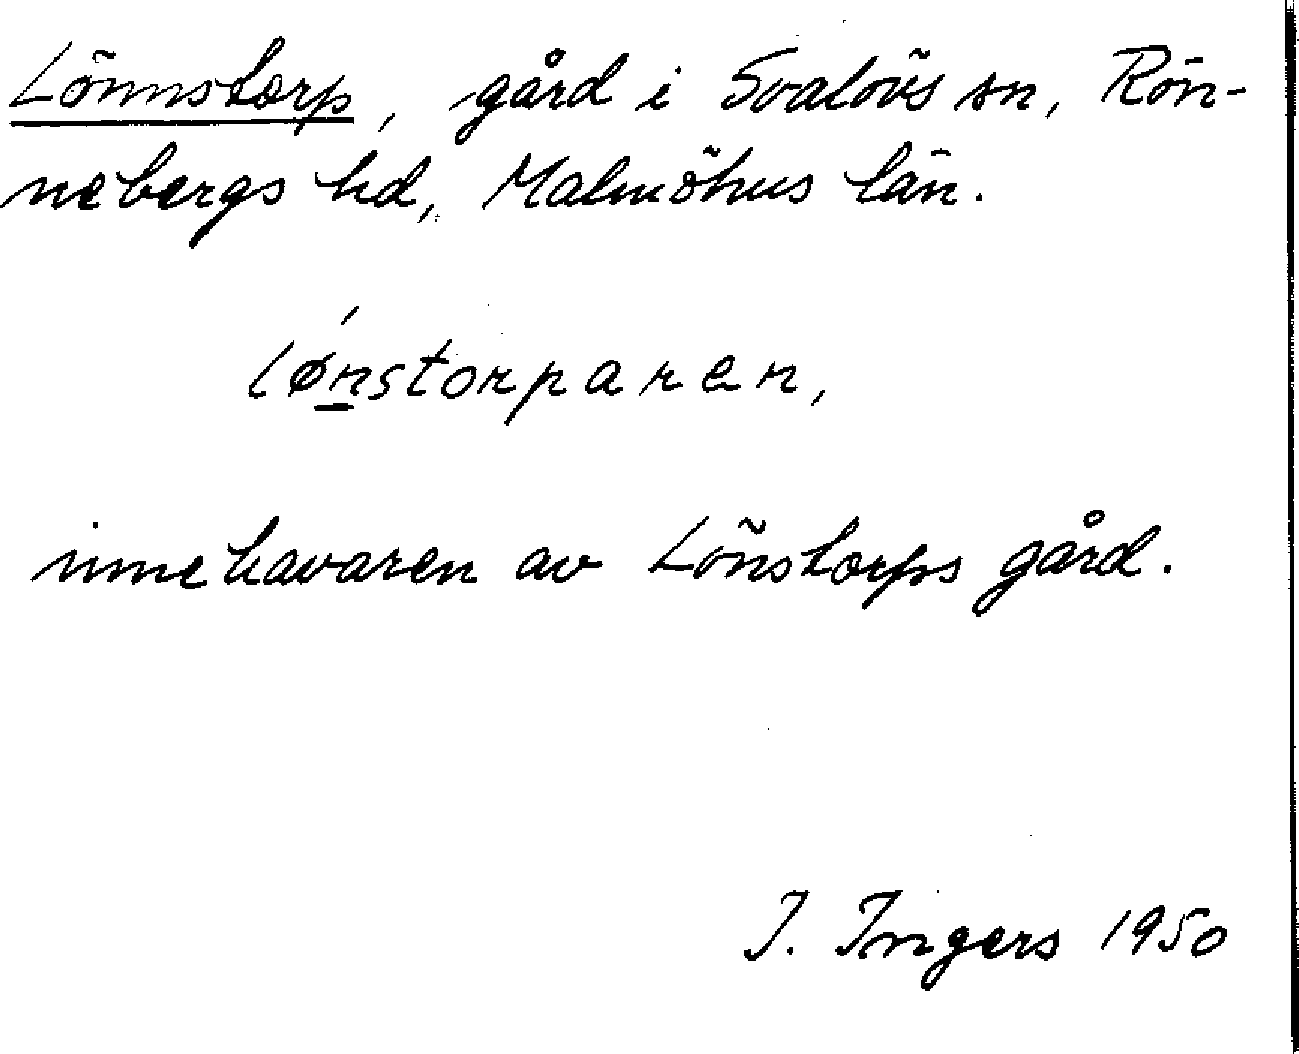 Lönnstorp, gård i Svalövs sn, Rön-
nebergs hd, Malmöhus län.
lǿnstorparen,
innehavaren av Lönstorps gård.
I. Ingers 1950